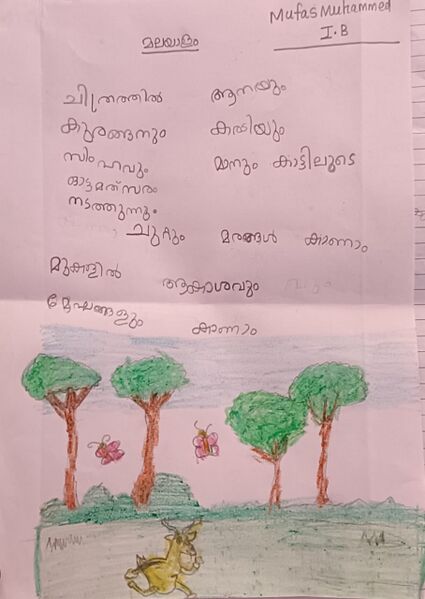 Mufas Muhammed
I.B
മലയാളം
ചിത്രത്തിൽ ആനയും
കുരങ്ങനും കരടിയും
സിംഹവും മാനും കാട്ടിലൂടെ
ഓട്ടമത്സരം
നടത്തുന്നും
ചുറ്റും മരങ്ങൾ കാണാം
മുകളിൽ ആകാശവും
മേഘങ്ങളും കാണാം